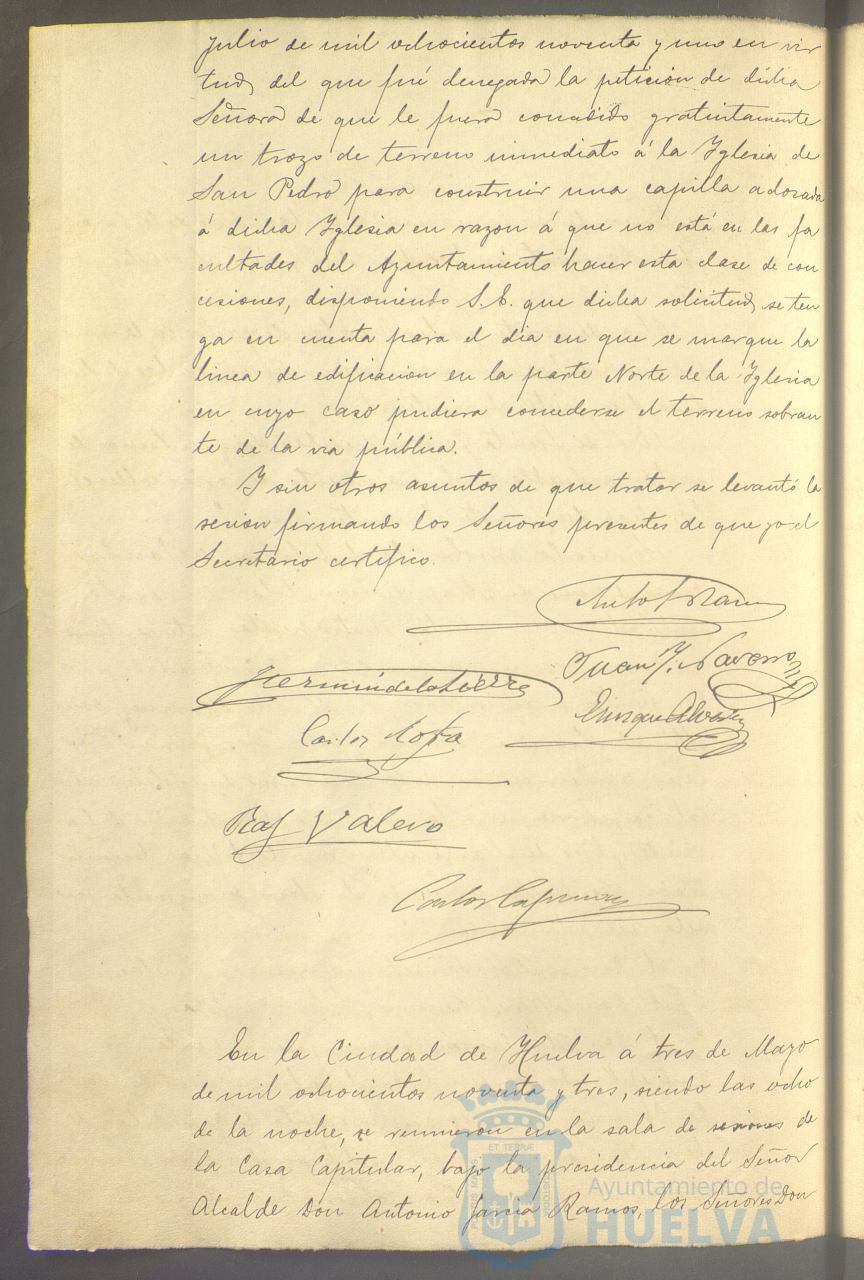 Julio de mil ochocientos noventa y uno en vir
tud del que fué denegada la petición de dicha
Señora de que le fuera concedido gratuitamente
un trozo de terreno inmediato á la Yglesia de
San Pedro para construir una capilla adosada
á dicha Yglesia en razon á que no está en las fa
cultades del Ayuntamiento hacer esta clase de con
cesiones, disponiendo S.E. que dicha solicitud se ten
ga en cuenta para el dia en que se marque la
linea de edificacion en la parte Norte de la Yglesia
en cuyo caso pudiera concederse el terreno sobran
te de la via pública.
Y sin otros asuntos de que tratar se levantó la
sesion firmando los Señores presentes de que yo el
Secretario certifico.
Juan J. Navarro
Fermín de la Sierra
Enrique Alvarez
Carlos
Raf Valero
Carlos
En la Ciudad de Huelva á tres de Mayo
de mil ochocientos noventa y tres, siendo las ocho
de la noche, se reunieron en la sala de sesiones de
la Casa Capitular, bajo la presidencia del Señor
Alcalde Don Antonio Garcia Ramos, los Señores Don
ET TERRÆ
Ayuntamiento de
HUELVA